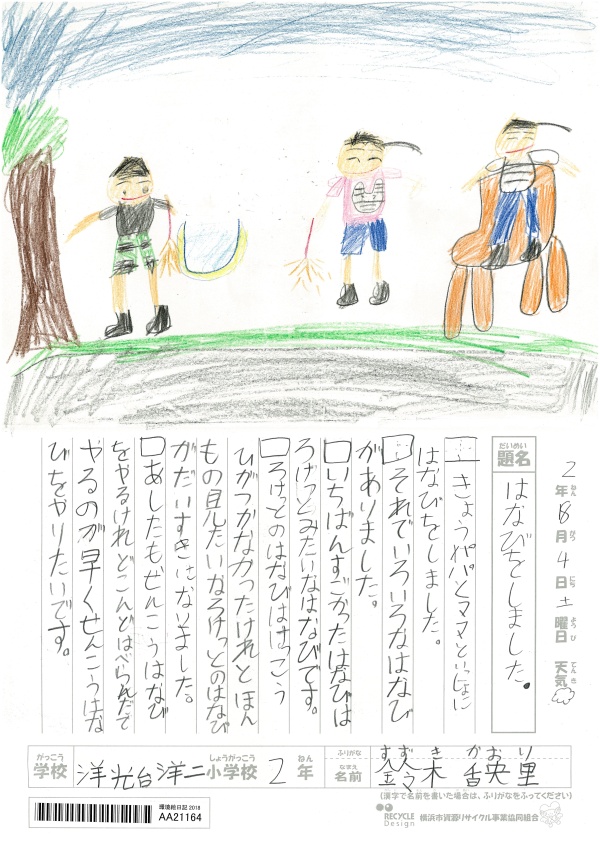 2年8月4日土曜日 天気
ねん がつ にち ようび てんき
だいめい
題名
はなびをしました。
きょうパパとママといっしょに
はなびをしました。
それでいろいろなはなび
がありました。
いちばんすごかったはなびは
ろけっとみたいなはなびです。
ろけっとのはなびはけっこう
ひがつかなかったけれとほん
もの見たいなろけっとのはなび
がだいすきになりました。
あしたもぜんこうはなび
をやるけれどこんどはべらんだで
やるのが早くせんこうはな
びをやりたいです。
がっこう
学校
洋光台洋二小学校 2年
しょうがっこう ねん
ふりがな すずき かおり
なまえ
名前 木 央里
(漢字で名前を書いた場合は、ふりがなをふってください)
環境絵日記 2018
AA21164
RECYCLE Design
横浜市資源リサイクル事業協同組合